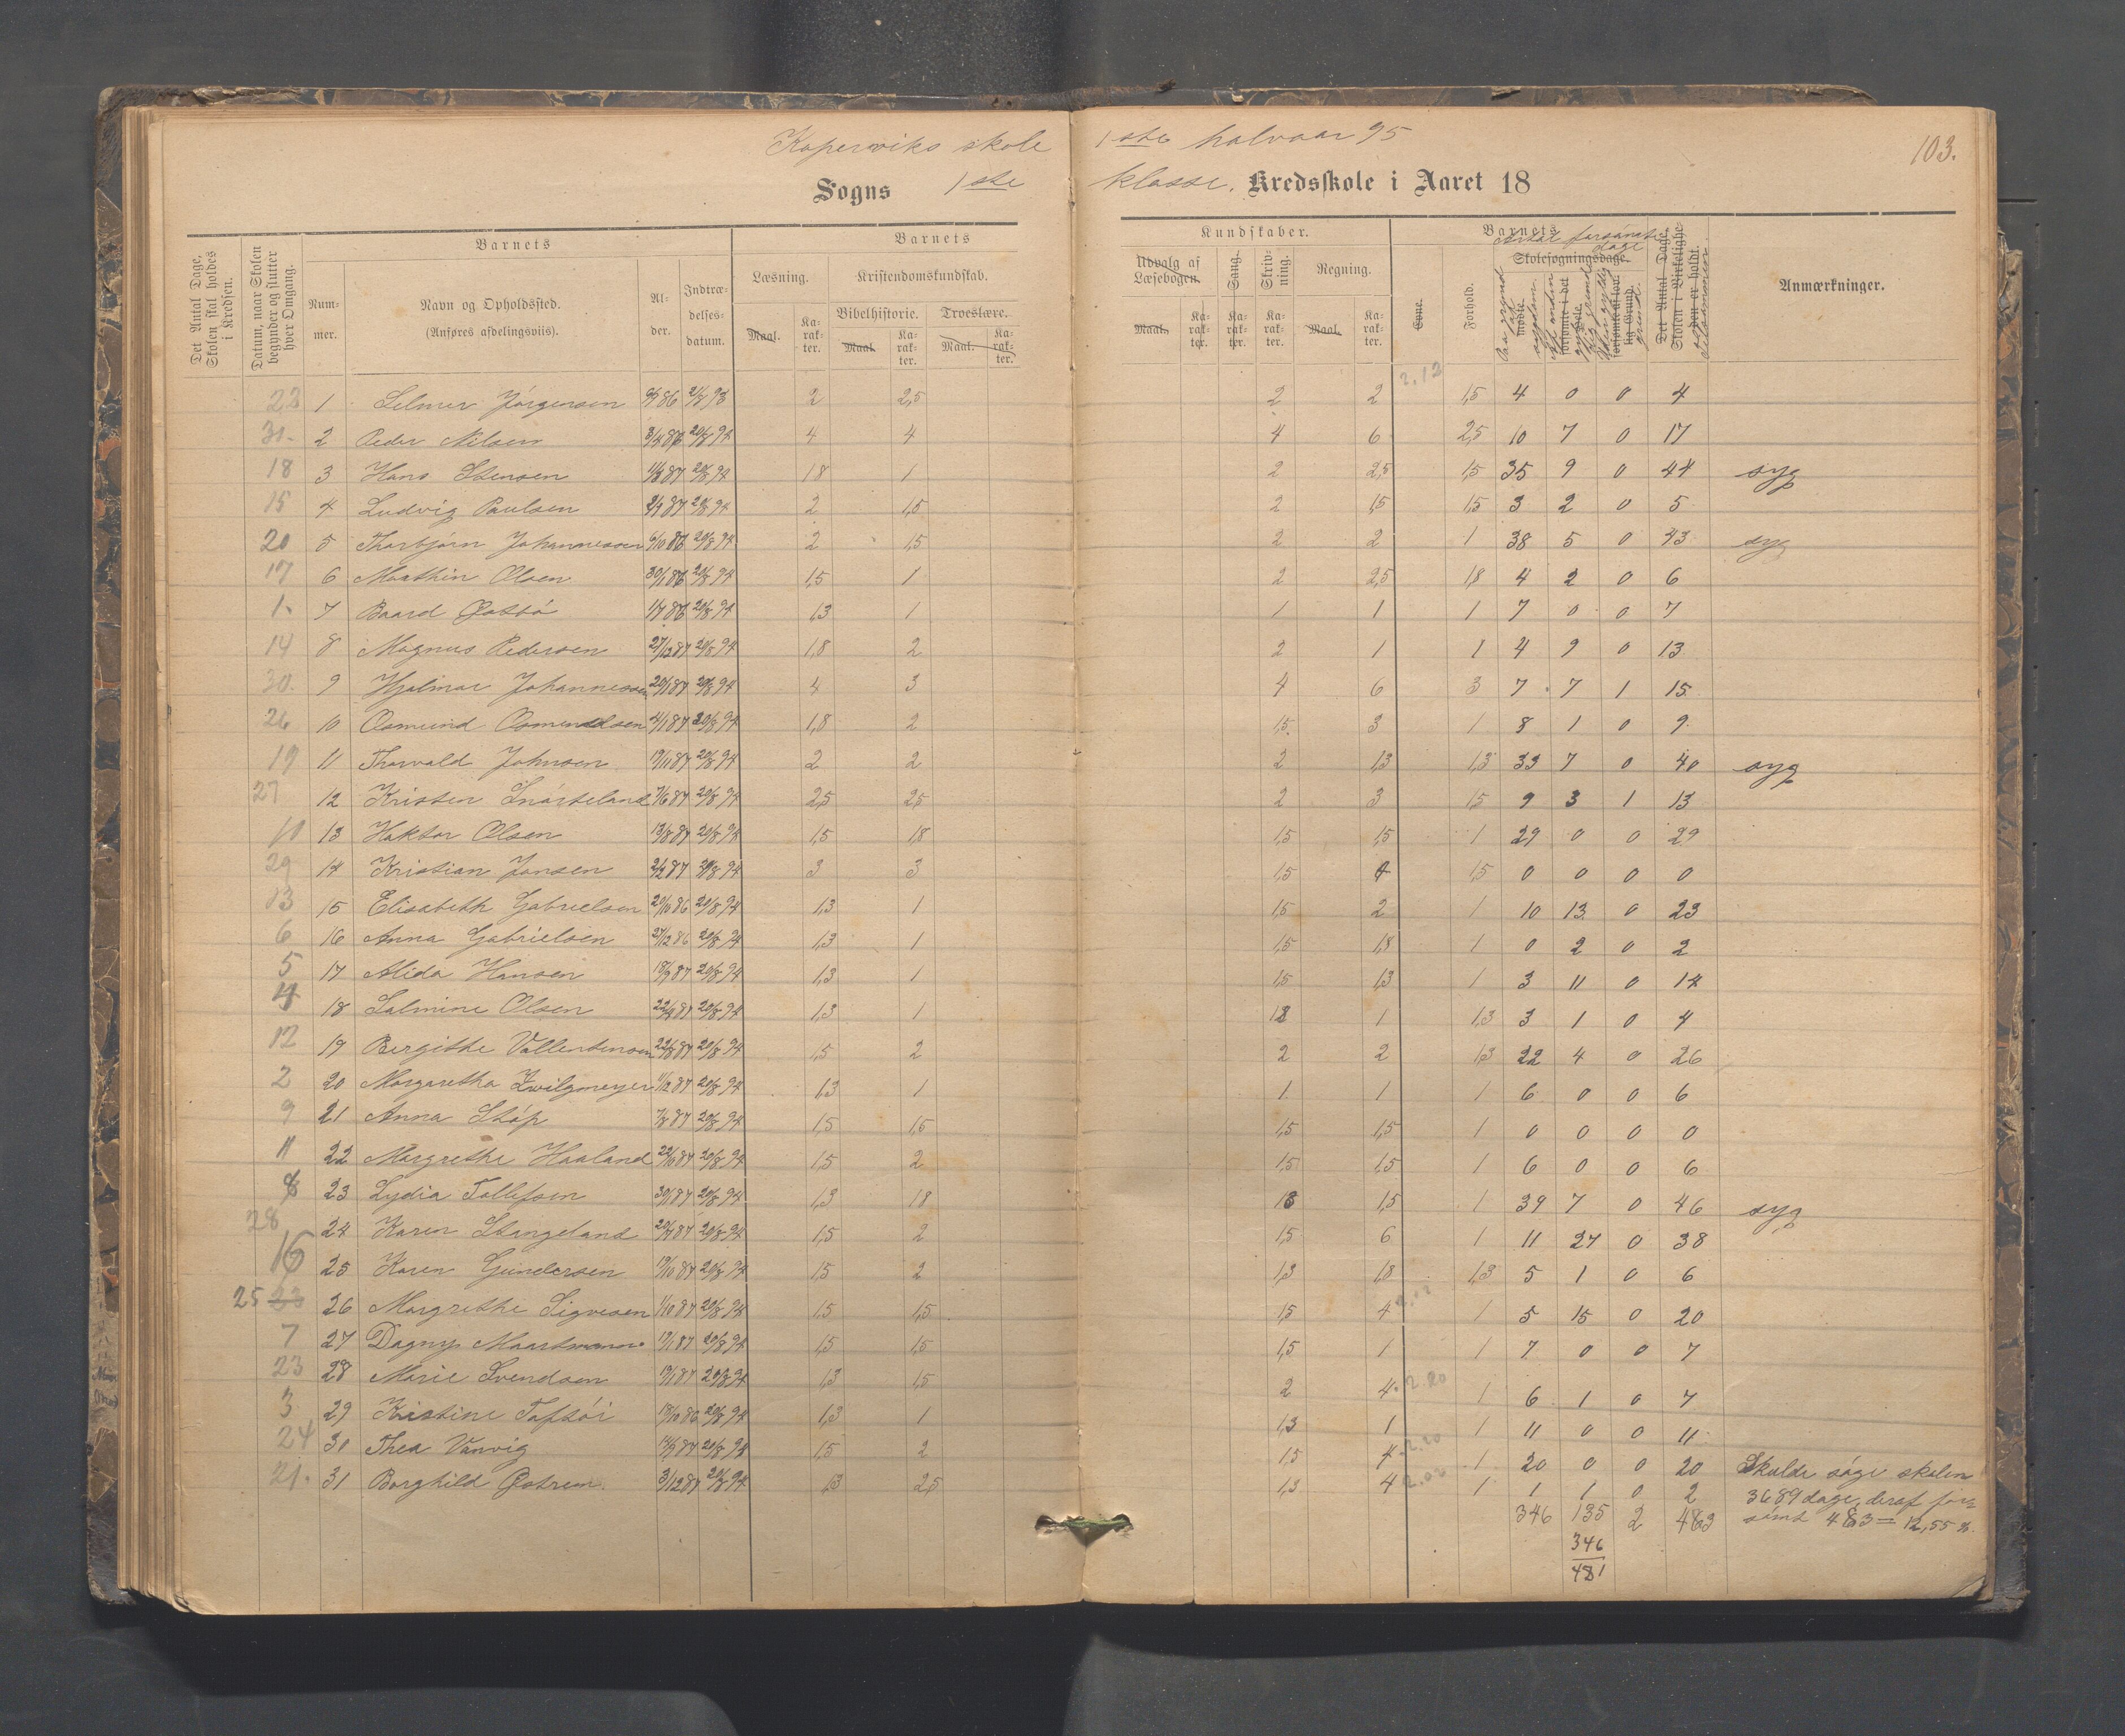 Kopervviks skole 1ste halvaar 95
103.
Sogns 1ste klasse. Kredsskole i Aaret 18
Det Antal Dage, Skolen skal holdes i Kredsen.
Datum, naar Skolen begynder og slutter hver Omgang.
Barnets
Num-mer.
Navn og Opholdssted.
(Anføres afdelingsviis).
Al-der.
Indtræ-delses-datum.
Barnets Kundskaber.
Læsning.
Maal.
Ka-rak-ter.
Kristendomskundskab.
Bibelhistorie.
Maal.
Ka-rak-ter.
Troeslære.
Maal.
Ka-rak-ter.
Udvalg af Læsebogen.
Maal.
Ka-rak-ter.
Sang.
Ka-rak-ter.
Skriv-ning.
Ka-rak-ter.
Regning.
Maal.
Ka-rak-ter.
Evne.
Forhold.
Barnets
Antal forsømte dage
Skolesøgningsdage.
mødte.
forsømt i det Hele.
forsømt af lov-lig Grund.
Det Antal Dage, Skolen i Virkelighe-den er holdt.
Anmærkninger.
2.12
22 1 Selmer Jörgensen 86 21/8 93 2 2,5 2 2 1,5 4 0 0 4
31. 2 Peder Nilsen 3/4 86 20/8 94 4 4 4 6 2,5 10 7 0 17
18 3 Hans Stensen 87 20/8 94 1,8 1 2 2,5 1,5 35 9 0 44 syg
15 4 Ludvig Paulsen 87 20/8 94 2 1,5 2 1,5 1,5 3 2 0 5
20 5 Thorbjørn Johannessen 6/10 86 20/8 94 2 1,5 2 2 1 38 5 0 43 syg
17 6 Mathin Olsen 30/1 86 20/8 94 1,5 1 2 2,5 1,8 4 2 0 6
1. 7 Baard Østbö 86 20/8 94 1,3 1 1 1 1 7 0 0 7
14 8 Magnus Pedersen 27/12 87 20/8 94 1,8 2 2 1 1 4 9 0 13
30. 9 Hjalmar Johannessen 20/1 87 20/8 94 4 3 4 6 3 7 7 1 15
26 10 Osmund Osmundsen 4/1 87 20/8 94 1,8 2 1,5 3 1 8 1 0 9
19 11 Thorvald Johnsen 19/11 87 20/8 94 2 2 2 1,3 1,3 33 7 0 40 syg
27 12 Kristen Snörteland 7/6 87 20/8 94 2,5 2,5 2 3 1,5 9 3 1 13
10 13 Haktor Olsen 13/8 87 20/8 94 1,5 1,8 1,5 1,5 1 29 0 0 29
29 14 Kristian Jansen 87 20/8 94 3 3 1,5 4 1,5 0 0 0 0
13 15 Elisabeth Gabrielsen 20/10 86 20/8 94 1,3 1 1,5 2 1 10 13 0 23
6 16 Anna Gabrielsen 27/12 86 20/8 94 1,3 1 1,5 1,8 1 0 2 0 2
5 17 Alida Hansen 87 20/8 94 1,3 1 1,5 1,3 1 3 11 0 14
4 18 Salmine Olsen 87 20/8 94 1,3 1 1,8 1 1,3 3 1 0 4
12 19 Bergithe Vallentensen 22/8 87 20/8 94 1,5 2 2 2 1,3 22 4 0 26
2 20 Margaretha Zwilgmeyer 11/12 87 20/8 94 1,3 1 1 1 1 6 0 0 6
9 21 Anna Støp 87 20/8 94 1,5 1,5 1,5 1,5 1 0 0 0 0
11 22 Margrethe Haaland 22/10 87 20/8 94 1,5 2 1,5 1,5 1 6 0 0 6
8 23 Lydia Tollefsen 30/1 87 20/8 94 1,3 1,8 1,8 1,5 1 39 7 0 46 syg
28 24 Karen Stangeland 87 20/8 94 1,5 2 1,5 6 1 11 27 0 38
16 25 Karen Gundersen 19/10 87 20/8 94 1,5 2 1,3 1,8 1,3 5 1 0 6
25 23 26 Margrethe Sigvesen 1/10 87 20/8 94 1,5 1,5 1,5 4 1 5 15 0 20
7 27 Dagny Maartmann 19/1 87 20/8 94 1,5 1,5 1,5 1 1 7 0 0 7
23 28 Marie Svendsen 19/1 87 20/8 94 1,3 1,5 2 4 2.20 1 6 1 0 7
3 29 Kristine Toftöi 18/10 86 20/8 94 1,3 1 1,3 1 1 11 0 0 11
24 30 Thea Vanvig 87 20/8 94 1,5 2 1,5 4 2.20 1 20 0 0 20
21. 31 Borghild Østrem. 3/12 87 20/8 94 1,3 2,5 1,3 4 2.00 1 1 1 0 2
346 135 2 483
346
481
Skulde søge skolen
3689 dage, deraf for=
sømt 483 = 12,55 %.